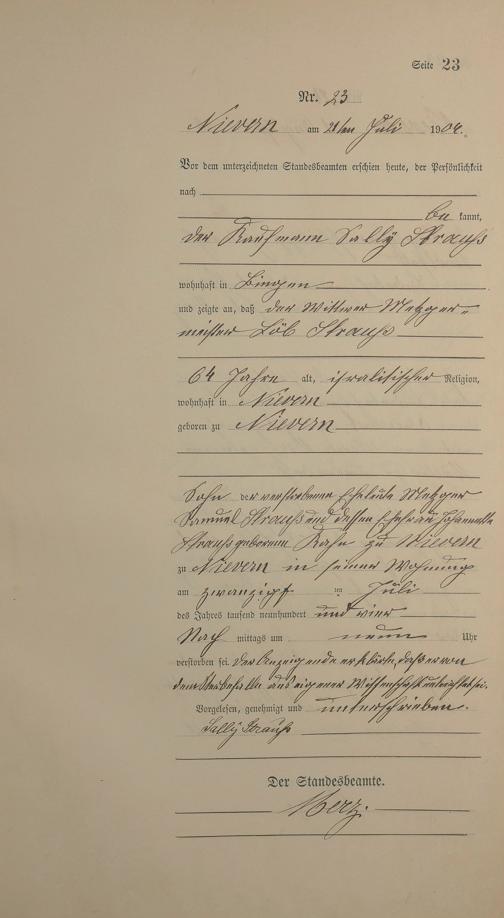 Seite 23
Nr. 23
Nievern am 21ten Juli 1904.
Vor dem unterzeichneten Standesbeamten erschien heute, der Persönlichkeit
nach
be kannt,
der Kaufmann Sally Strauß
wohnhaft in Bingen
und zeigte an, daß der Wittwer Metzger-
meister Löb Strauß
64 Jahre alt, isralitischer Religion,
wohnhaft in Nievern
geboren zu Nievern
Sohn der verstorbenen Eheleute Metzger
Samuel Strauß und dessen Ehefrau
Strauß geborenen Kahn zu Nievern
zu Nievern in seiner Wohnung
am zwanzigst im Juli
des Jahres tausend neunhundert und vier
Nach mittags um neun Uhr
verstorben sei. Der Anzeigende erklärte, daß er von
dem Sterbefalle aus eigener Wissenschaft unterrichtet sei.
Vorgelesen, genehmigt und unterschrieben.
Sally Strauß
Der Standesbeamte.
Merz.